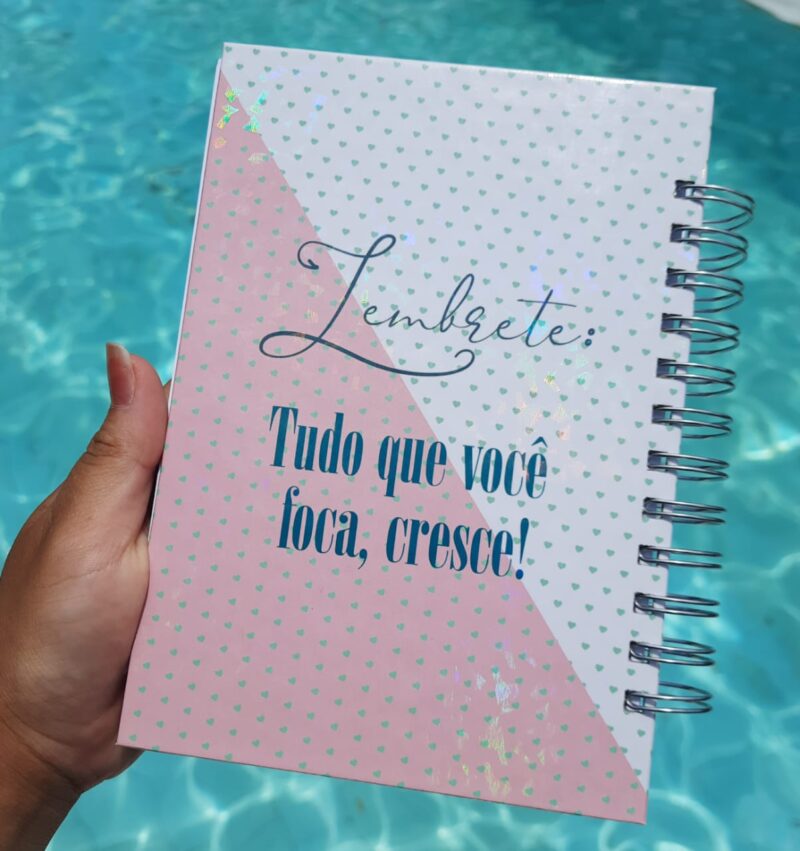 Lembrete:
Tudo que você
foca, cresce!